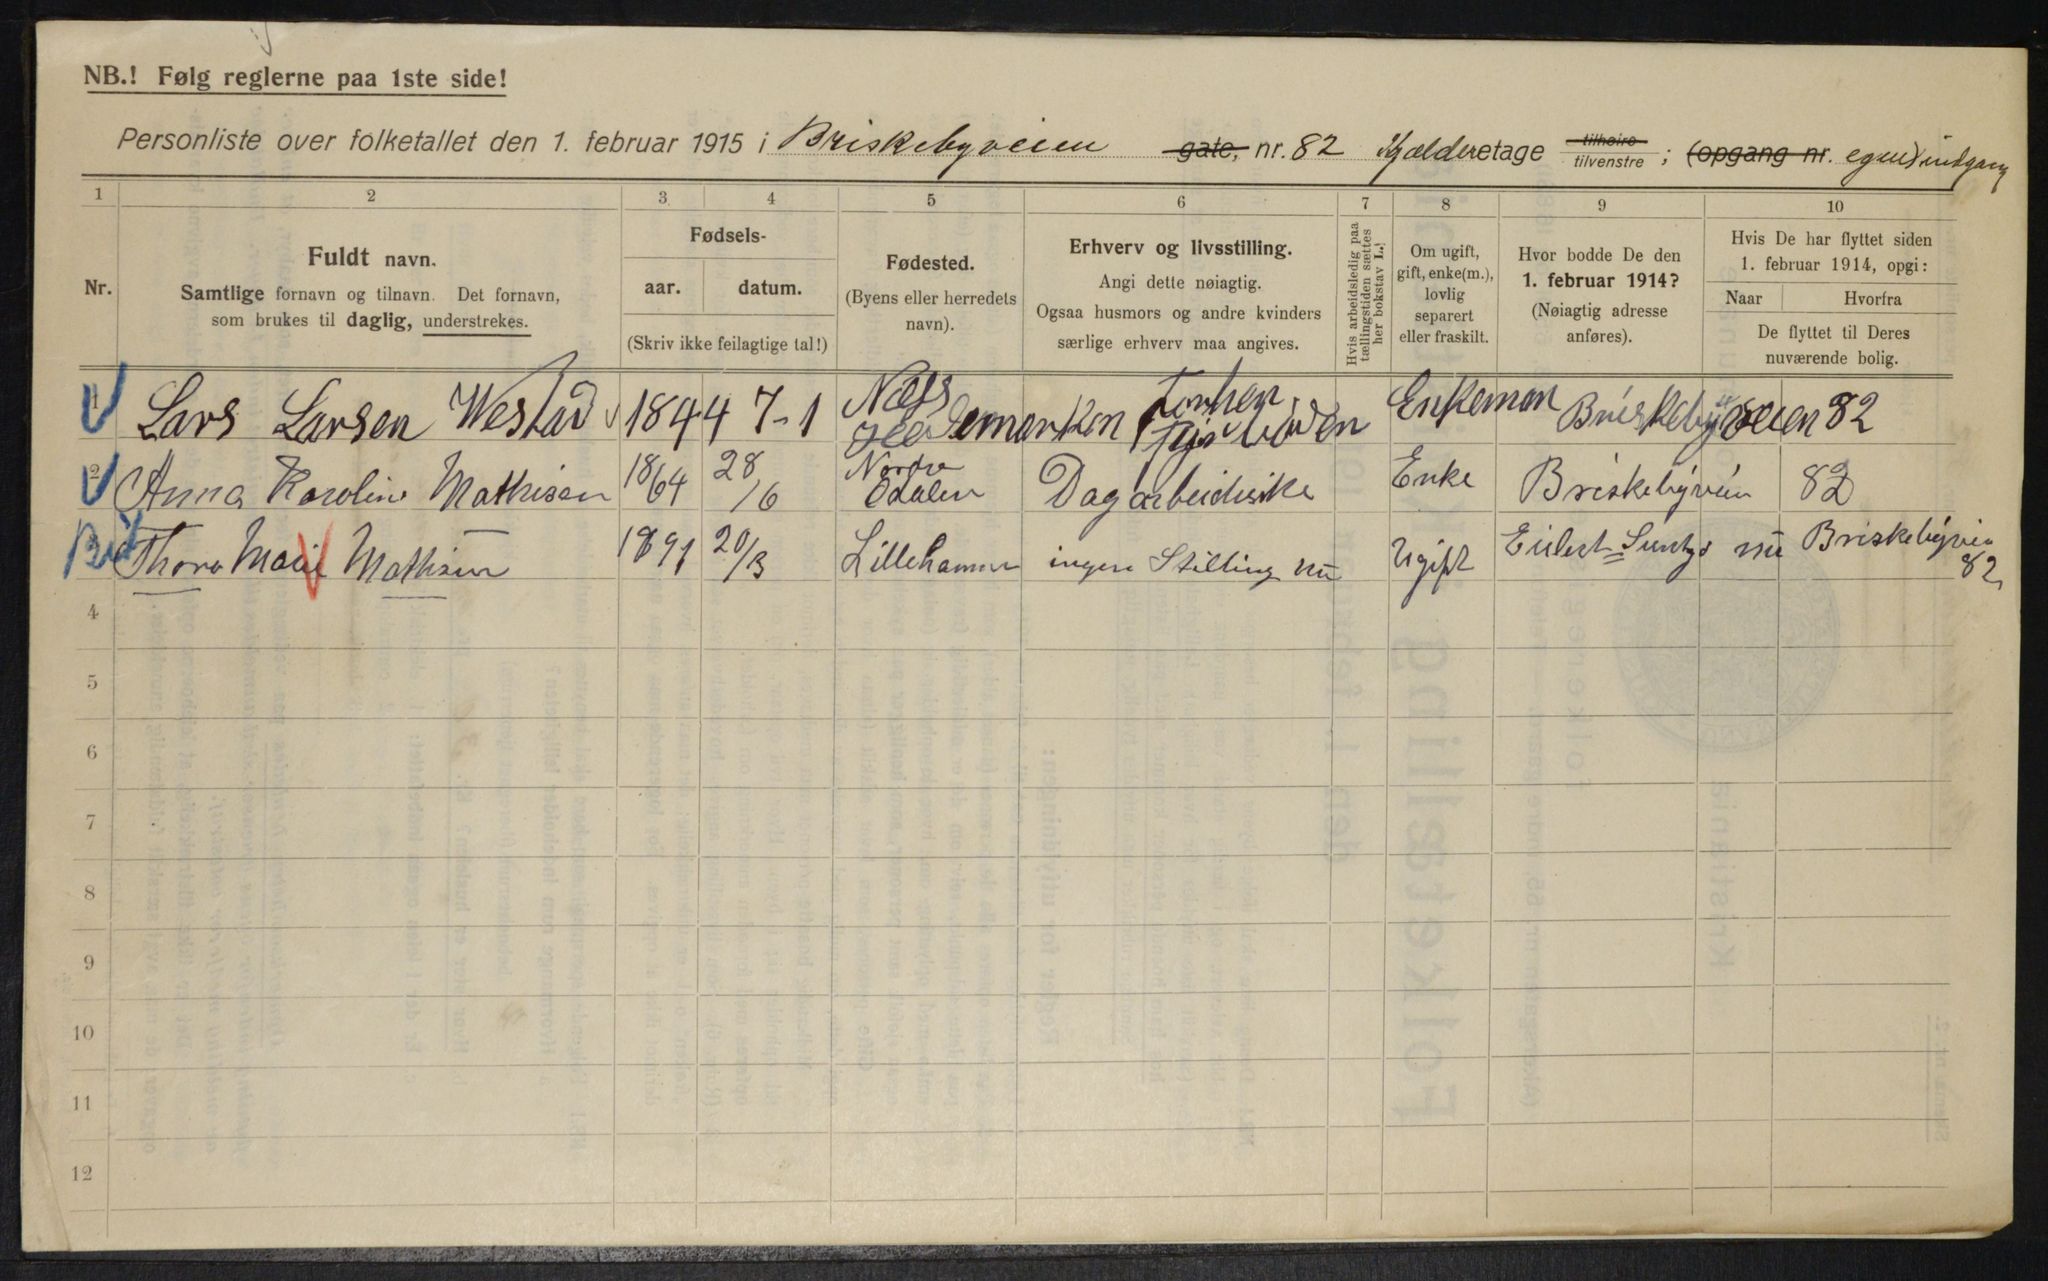 NB.! Følg reglerne paa 1ste side!
Personliste over folketallet den 1. februar 1915 i Briskebyveien gate, nr. 82 Kjælderetage tilhøire tilvenstre ; (opgang nr. egen) indgang
1 2 3 4 5 6 7 8 9 10
Nr.
Fuldt navn.
Samtlige fornavn og tilnavn. Det fornavn,
som brukes til daglig, understrekes.
Fødsels-
aar. datum.
(Skriv ikke feilagtige tal!)
Fødested.
(Byens eller herredets
navn).
Erhverv og livsstilling.
Angi dette nøiagtig.
Ogsaa husmors og andre kvinders
særlige erhverv maa angives.
Hvis arbeidsledig paa
tællingstiden sættes
her bokstav L.!
Om ugift,
gift, enke(m.),
lovlig
separert
eller fraskilt.
Hvor bodde De den
1. februar 1914?
(Nøiagtig adresse
anføres).
Hvis De har flyttet siden
1. februar 1914, opgi:
Naar Hvorfra
De flyttet til Deres
nuværende bolig.
1 Lars Larsen Westad 1844 7-1 Næss Hedemarken Enkeman Briskebyveien 82
2 Anna Karoline Mathisen 1864 28/6 Nordre Odalen Dagarbeiderske Enke Briskebyveien 82
Thora Marie Mathisen 1891 20/3 Lillehammer ingen Stilling nu Ugift Eilert Sundts nu Briskebyvein 82
4
5
6
7
8
9
10
11
12